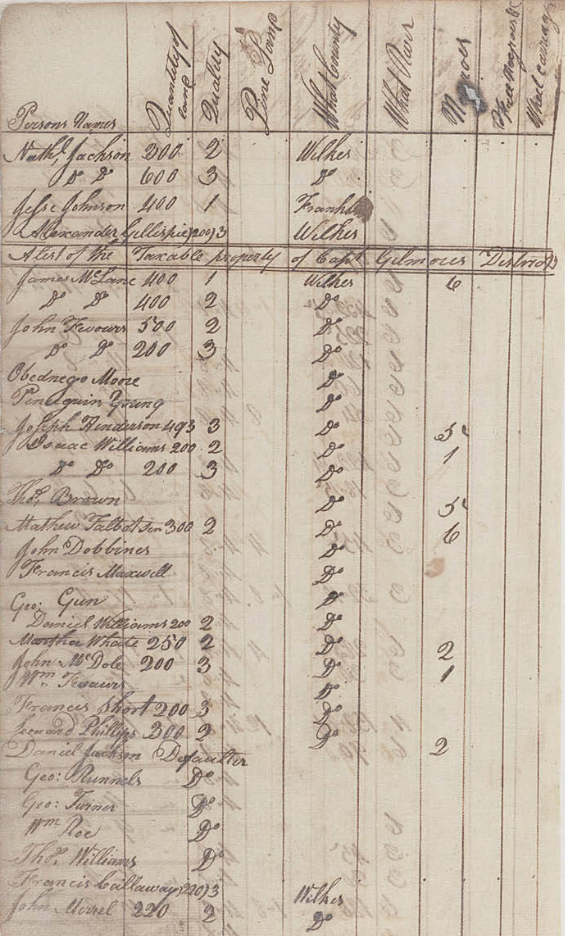 Persons Names Quantity of Land Quality Pine Land What County What River Negroes Free Negroes & Wheel carriage
Nath. Jackson 200 2 Wilkes
Do Do 600 3 Do
Jesse Johnson 400 1 Franklin
Alexander Gillispie 200 3 Wilkes
A List of the Taxable property of Capt Gilmores District
James McLane 400 1 Wilkes 6
Do Do 400 2 Do
John Fevours 500 2 Do
Do Do 200 3 Do
Obednego Moore Do
Young Do
Joseph Henderson 493 3 Do 5
Isaac Williams 200 2 Do 1
Do Do 200 3 Do
Thos. Brown Do 5
Mathew Talbot Sen 300 2 Do 6
John Dobbines Do
Francis Maxwell Do
Geo: Gun Do
Daniel Williams 200 2 Do
Martha White 250 2 Do 2
John McDole 200 3 Do 1
Wm Fevours Do
Francis Short 200 3 Do
Leonard Phillips 300 2 Do
Daniel Jackson Defaulter 2
Geo: Runnels Do
Geo: Turner Do
Wm Roe Do
Thos. Williams Do
Francis Callaway 220 3 Wilkes
John Mirrel 220 2 Do